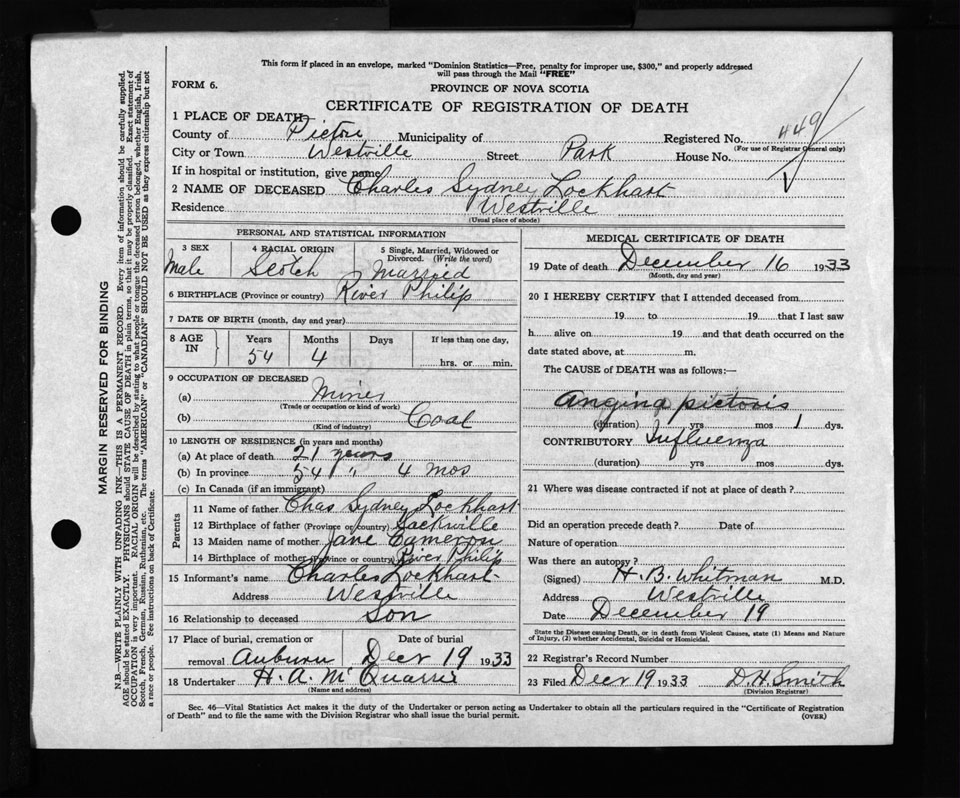 This form if placed in an envelope, marked "Dominion Statistics—Free, penalty for improper use, $300," and properly addressed
will pass through the Mail "FREE"
FORM 6.
PROVINCE OF NOVA SCOTIA
CERTIFICATE OF REGISTRATION OF DEATH
449
1 PLACE OF DEATH
County of Pictou Municipality of Registered No.
(For use of Registrar General only)
City or Town Westville Street Park House No.
If in hospital or institution, give name
2 NAME OF DECEASED Charles Sydney Lockhart
Residence Westville
(Usual place of abode)
PERSONAL AND STATISTICAL INFORMATION
3 SEX 4 RACIAL ORIGIN 5 Single, Married, Widowed or Divorced. (Write the word)
Male Scotch Married
6 BIRTHPLACE (Province or country) River Philip
7 DATE OF BIRTH (month, day and year)
8 AGE IN Years Months Days If less than one day,
54 4 hrs. or min.
9 OCCUPATION OF DECEASED
(a) Miner
(Trade or occupation or kind of work)
(b) Coal
(Kind of industry)
10 LENGTH OF RESIDENCE (in years and months)
(a) At place of death 21 years
(b) In province 54 " 4 mos
(c) In Canada (if an immigrant)
Parents
11 Name of father Chas Sydney Lockhart
12 Birthplace of father (Province or country) Sackville
13 Maiden name of mother Jane Cameron
14 Birthplace of mother (Province or country) River Philip
15 Informant's name Charles Lockhart
Address Westville
16 Relationship to deceased Son
17 Place of burial, cremation or Date of burial
removal Auburn Decr 19 1933
18 Undertaker H. A. McQuarrie
(Name and address)
MEDICAL CERTIFICATE OF DEATH
19 Date of death December 16 1933
(Month, day and year)
20 I HEREBY CERTIFY that I attended deceased from
19 to 19 that I last saw
h alive on 19 and that death occurred on the
date stated above, at m.
The CAUSE of DEATH was as follows:—
Angina pictoris
(duration) yrs mos 1 dys.
CONTRIBUTORY Influenza
(duration) yrs mos dys.
21 Where was disease contracted if not at place of death?
Did an operation precede death? Date of
Nature of operation
Was there an autopsy?
(Signed) H. B. Whitman M.D.
Address Westville
Date December 19
State the Disease causing Death, or in death from Violent Causes, state (1) Means and Nature
of Injury, (2) whether Accidental, Suicidal or Homicidal.
22 Registrar's Record Number
23 Filed Decr 19 1933 D.H. Smith
(Division Registrar)
Sec. 46—Vital Statistics Act makes it the duty of the Undertaker or person acting as Undertaker to obtain all the particulars required in the "Certificate of Registration
of Death" and to file the same with the Division Registrar who shall issue the burial permit.
(OVER)
MARGIN RESERVED FOR BINDING
N.B. WRITE PLAINLY WITH UNFADING INK—THIS IS A PERMANENT RECORD. Every item of information should be carefully supplied.
AGE should be stated EXACTLY. PHYSICIANS should STATE CAUSE OF DEATH in plain terms, so that it may be properly classified. Exact statement of
OCCUPATION is very important. RACIAL ORIGIN will be described by stating to what people or tongue the deceased person belonged, whether English, Irish,
Scotch, French, German, Russian, Ruthenian, etc. The terms "AMERICAN" or "CANADIAN" SHOULD NOT BE USED as they express citizenship but not
a race or people. See instructions on back of Certificate.